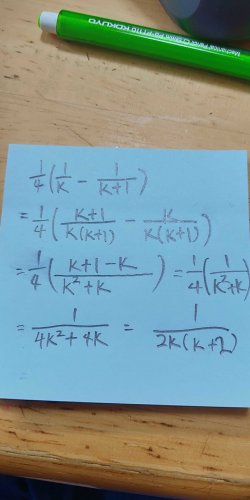 KOKUYO
1/4(1/K - 1/(K+1))
= 1/4((K+1)/(K(K+1)) - K/(K(K+1)))
= 1/4((K+1-K)/(K²+K)) = 1/4(1/(K²+K)
= 1/(4K²+4K) = 1/(2K(K+2))